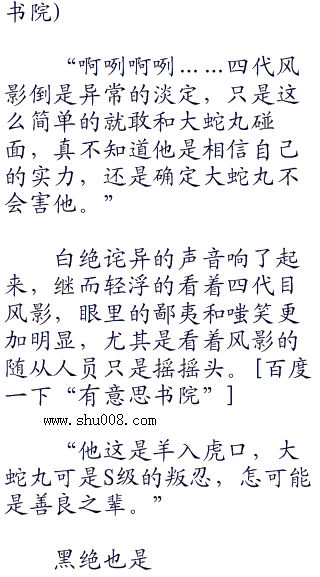 书院)
“啊咧啊咧……四代风
影倒是异常的淡定，只是这
么简单的就敢和大蛇丸碰
面，真不知道他是相信自己
的实力，还是确定大蛇丸不
会害他。”
白绝诧异的声音响了起
来，继而轻浮的看着四代目
风影，眼里的鄙夷和嗤笑更
加明显，尤其是看着风影的
随从人员只是摇摇头。[百度
一下“有意思书院”]
www.shu008.com
“他这是羊入虎口，大
蛇丸可是S级的叛忍，怎可能
是善良之辈。”
黑绝也是